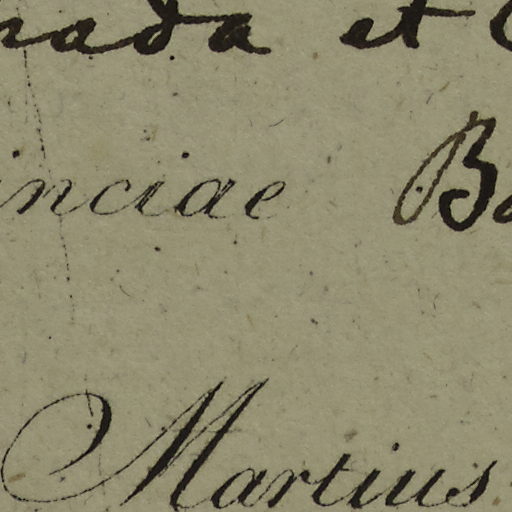 nada et
inciae Ba
Martius